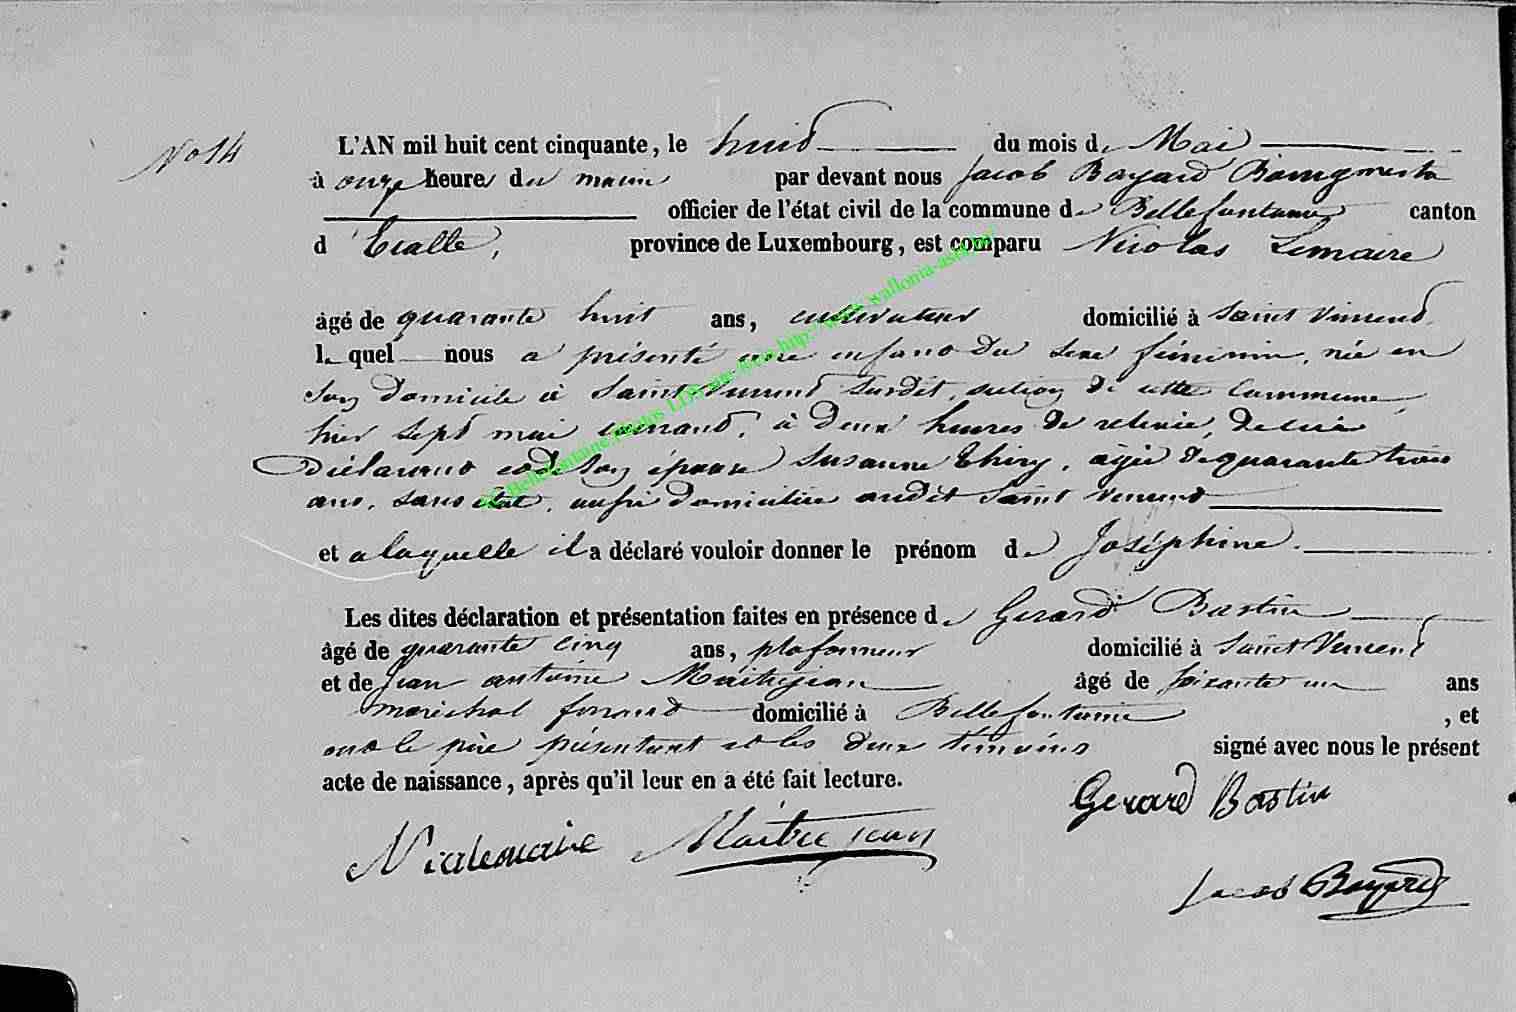 No 14
L'AN mil huit cent cinquante, le huit du mois de Mai
à onze heures du matin par devant nous Jacob Bayard Bourgmestre
officier de l'état civil de la commune de Bellefontaine canton
d'Etalle, province de Luxembourg, est comparu Nicolas Lemaire
âgé de quarante huit ans, cultivateur domicilié à Saint Vincent
lequel nous a présenté une enfant du sexe féminin, née en
son domicile à Saint Vincent susdit, section de cette Commune,
hier sept mai courant, à deux heures de relevée, de lui
Déclarant et de Son épouse Susanne Thiry, agée de quarante trois
ans, sans état, aussi domiciliée audit Saint Vincent
et a laquelle il a déclaré vouloir donner le prénom de Joséphine.
Les dites déclaration et présentation faites en présence de Gerard Bastin
âgé de quarante cinq ans, plafonneur domicilié à Saint Vincent
et de Jean antoine Maitrejean âgé de soixante un ans
maréchal ferrant domicilié à Bellefontaine, et
ont le père présentant et les deux témoins signé avec nous le présent
acte de naissance, après qu'il leur en a été fait lecture.
Gerard Bastin
Nic Lemaire Maitrejean
Jacob Bayard
Bellefontaine photos LDS sur Rosa http://www.wallonia-asbl.be/